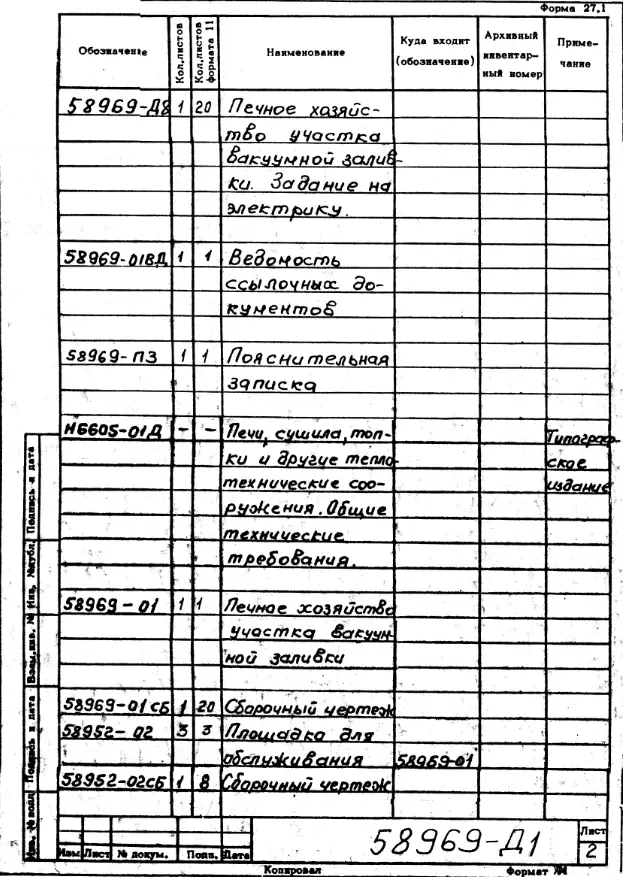 Форма 27.1
Обозначение Кол.листов Кол.листов формата 11 Наименование Куда входит (обозначение) Архивный инвентарный номер Примечание
58969-Д8 1 20 Печное хозяйс-
тво участка
вакуумной залив-
ки. Задание на
электрику.
58969-01ВД 1 1 Ведомость
ссылочных до-
кументов
58969-ПЗ 1 1 Пояснительная
записка
Н6605-01Д - - Печи, сушила, топ- Типограф-
ки и другие тепло- ское
технические соо- издание
ружения. Общие
технические
требования.
58969-01 1 1 Печное хозяйство
участка вакуум-
ной заливки
58969-01СБ 1 20 Сборочный чертеж
58952-02 3 3 Площадка для
обслуживания 58969-01
58952-02СБ 1 8 Сборочный чертеж
Инв. № подл. Подпись и дата Взам. инв. № Инв. № дубл. Подпись и дата
58969-Д1
Лист
2
Изм Лист № докум. Подп. Дата
Копировал Формат